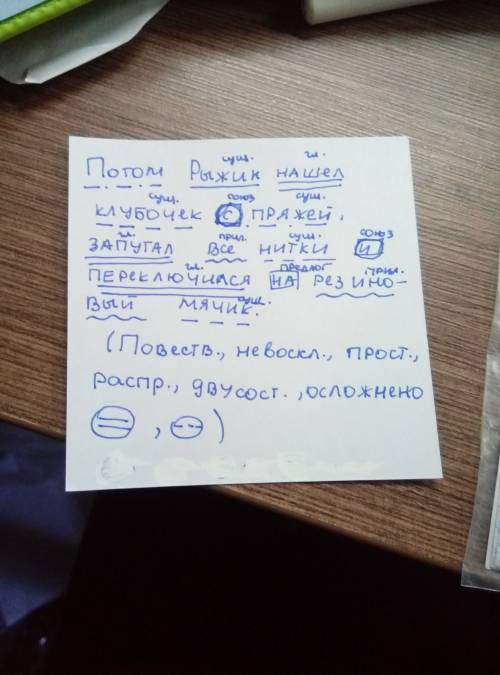 сущ. гл.
Потом Рыжик нашел
сущ. союз сущ.
клубочек с пряжей,
гл. прил. сущ. союз
запутал все нитки и
гл. предлог прил.
переключился на резино-
сущ.
вый мячик.
(Повеств., невоскл., прост.,
распр., двусост., осложнено
, )